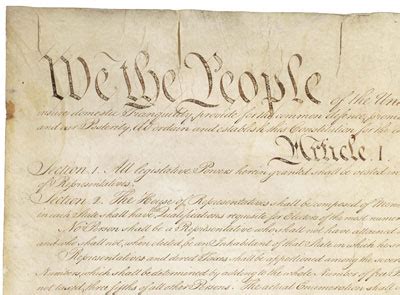 We the People of the Uni
insure domestic Tranquility, provide for the common defence, promo
and our Posterity, do ordain and establish this Constitution for the
Article. I.
Section. 1. All legislative Powers herein granted shall be vested in
of Representatives.
Section. 2. The House of Representatives shall be composed of Mem
in each State shall have Qualifications requisite for Electors of the most numer
No Person shall be a Representative who shall not have attained
and who shall not, when elected, be an Inhabitant of that State in which he
Representatives and direct Taxes shall be apportioned among the several
Numbers, which shall be determined by adding to the whole Number of free
not taxed, three fifths of all other Persons. The actual Enumeration shall